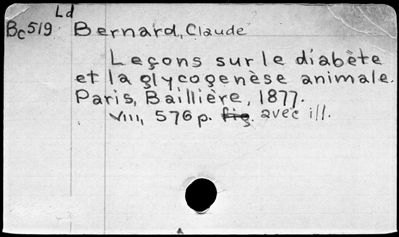 Ld
Bc519 Bernard, Claude
Leçons sur le diabète
et la glycogenèse animale.
Paris, Baillière, 1877.
VIII, 576 p. fig. avec ill.